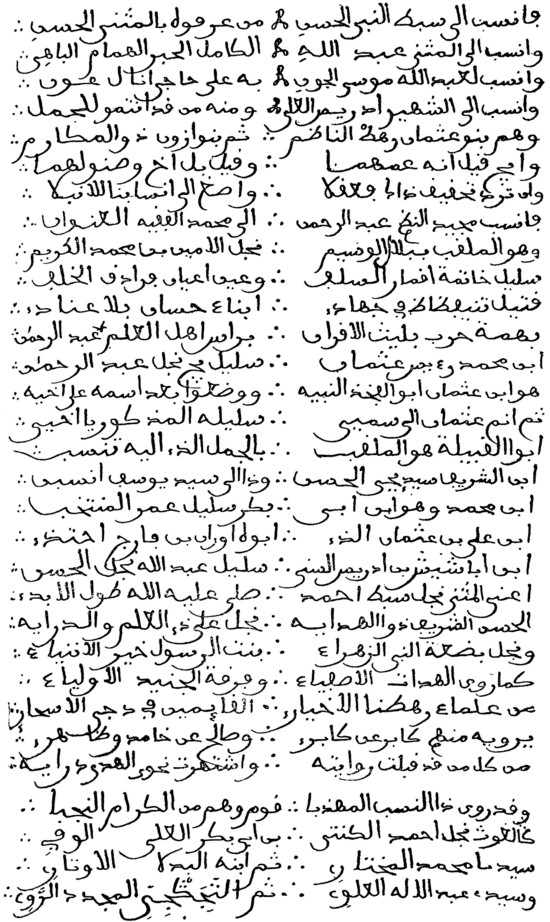 فانسب الى سبط النبي الحسن من عرفوه بالمثنى الحسن
وانسب الى المثنى عبد الله الكامل الحبر الهمام الباهي
وانسب لعبد الله موسى الجون به على
وانسب الى الشهير ادريس العلي ومنه من قد انتمو للجمل
وهم بنو عثمان رهط الناظم ثم بنو ازون ذو المكارم
قيل انه عمهما وقيل بل اخ وصنو لهما
وان ترد تحقيق ذاك واصغ الى انسابنا
فانسب محمد عبد الرحمن الى محمد الفقيه
وهو الملقب ببلال الوسيم نجل الامين بن محمد الكريم
سليل خاتمة اقمار السلف وعين اعيان الخلف
قتيل في جهاد ابناء حسان بلا عناد
بهمة حرب بليث الاقران براس اهل العلم عبد الرحمن
ابن محمد بن عثمان سليل نجل عبد الرحمن
هو ابن عثمان ابو النبيه ووضعوا بعد اسمه على اخيه
ثم انم عثمان الى سمي سليله المذكور يا اخي
ابو القبيلة هو الملقب بالجمل الذي اليه تنسب
ابن الشريف سيدي يحيى الحسن وذا الى سيد يوسف انسبن
ابن محمد وهو ابن ابي بكر سليل عمر المنتخب
ابن علي بن عثمان الذي ابوه اوران بن فارح احتذي
ابن ابا شنيش بن ادريس السني سليل عبد الله نجل الحسن
اعني المثنى نجل سبط احمد صلى عليه الله طول الأبد
الحسن الشريف ذو الهداية نجل علي ذي العلم والدراية
ونجل بضعة النبي الزهراء بنت الرسول خير الأنبياء
كما روى الهداة الاصفياء وفرقة الجنيد الأولياء
من علماء رهطنا الأخيار القايمين في دجى الاسحار
يرويه منهم كابر عن كابر وصالح عن حامد وطاهر
من كل من قد قبلت روايته واشتهرت نحو الهدى درايته
وقد روى ذا النسب المهذبا قوم وهم من الكرام النجبا
كالغوث نجل احمد الكنتي بن ابي بكر العلي الوفي
سيدنا محمد المختار ثم ابنه البدلا الاوتار
وسيدي عبد الاله العلوي ثم المجدد الروي